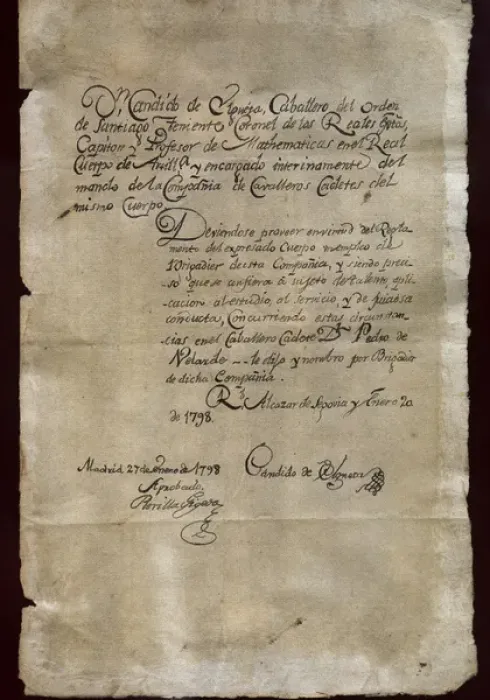 Dn. Candido de Elgueta, Caballero del Orden
de Santiago Teniente Coronel de los Reales Extos,
Capitan y Profesor de Mathematicas en el Real
Cuerpo de Artilla. y encargado interinamente del
mando de la Compañia de Cavalleros Cadetes del
mismo Cuerpo
Deviendose proveer en virtud del Regla-
mento del expresado Cuerpo un empleo de
Brigadier de esta Compañia, y siendo preci-
so que se confiera à sujeto de talento, apli-
cacion al estudio, al servicio, y de juiciosa
conducta, Concurriendo estas circunstan-
cias en el Caballero Cadete Dn. Pedro de
Velarde -- le elijo y nombro por Brigadier
de dicha Compañia.
Rl. Alcazar de Segovia y Enero 20
de 1798.
Madrid 27 de Enero de 1798
Candido de Elgueta
Aprobado,